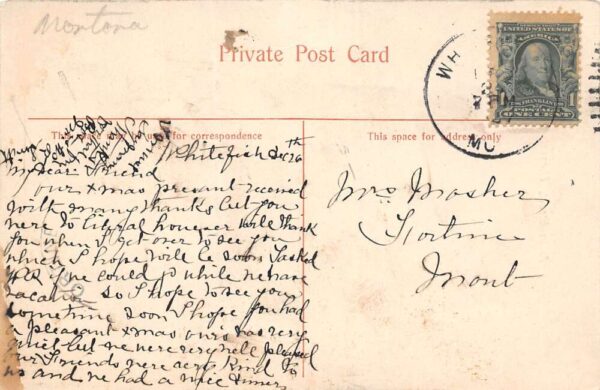 Montana
Private Post Card
This space may be used for correspondence
This space for address only
WH
MO
UNITED STATES OF
AMERICA
FRANKLIN
POSTAGE
1 ONE CENT 1
Whitefish Dec 26th
My Dear Friend
our xmas present received
with many thanks but you
were to liberal however will thank
you when I get over to see you
which I hope will be soon I asked
if we could go while we have
vacation so I hope to see you
sometime soon I hope you had
a pleasant xmas our's was very
quiet but we were very well pleased
our friends were very kind to
us and we had a nice dinner
Mrs Mosher
Fortine
Mont